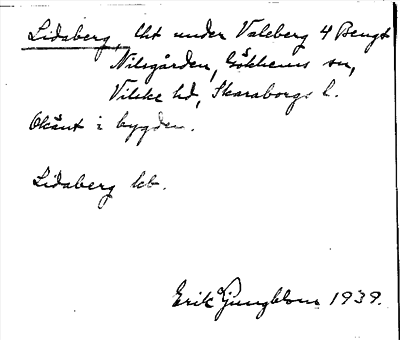 Lidaberg, lht under Valeberg 4 Bengt
Nilsgården, Gökhems sn,
Vilske hd, Skaraborgs l.
Okänt i bygden.
Lidaberg kb.
Erik Ljungblom 1939.